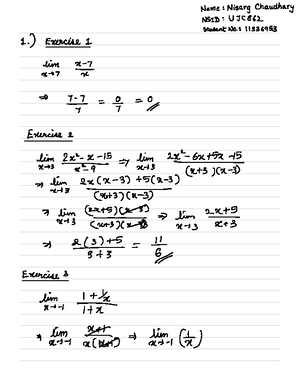 Name: Nisarg Chaudhary
NSID: UJC862
Student No.: 11336983
1.) Exercise 1
lim x→7 (x-7)/x
⇒ (7-7)/7 = 0/7 = 0
Exercise 2
lim x→3 (2x²-x-15)/(x²-9) ⇒ lim x→3 (2x²-6x+5x-15)/((x+3)(x-3))
⇒ lim x→3 (2x(x-3)+5(x-3))/((x+3)(x-3))
⇒ lim x→3 ((2x+5)(x-3))/((x+3)(x-3)) ⇒ lim x→3 (2x+5)/(x+3)
⇒ (2(3)+5)/(3+3) = 11/6
Exercise 3
lim x→-1 (1+1/x)/(1+x)
⇒ lim x→-1 (x+1)/(x(x+1)) ⇒ lim x→-1 (1/x)